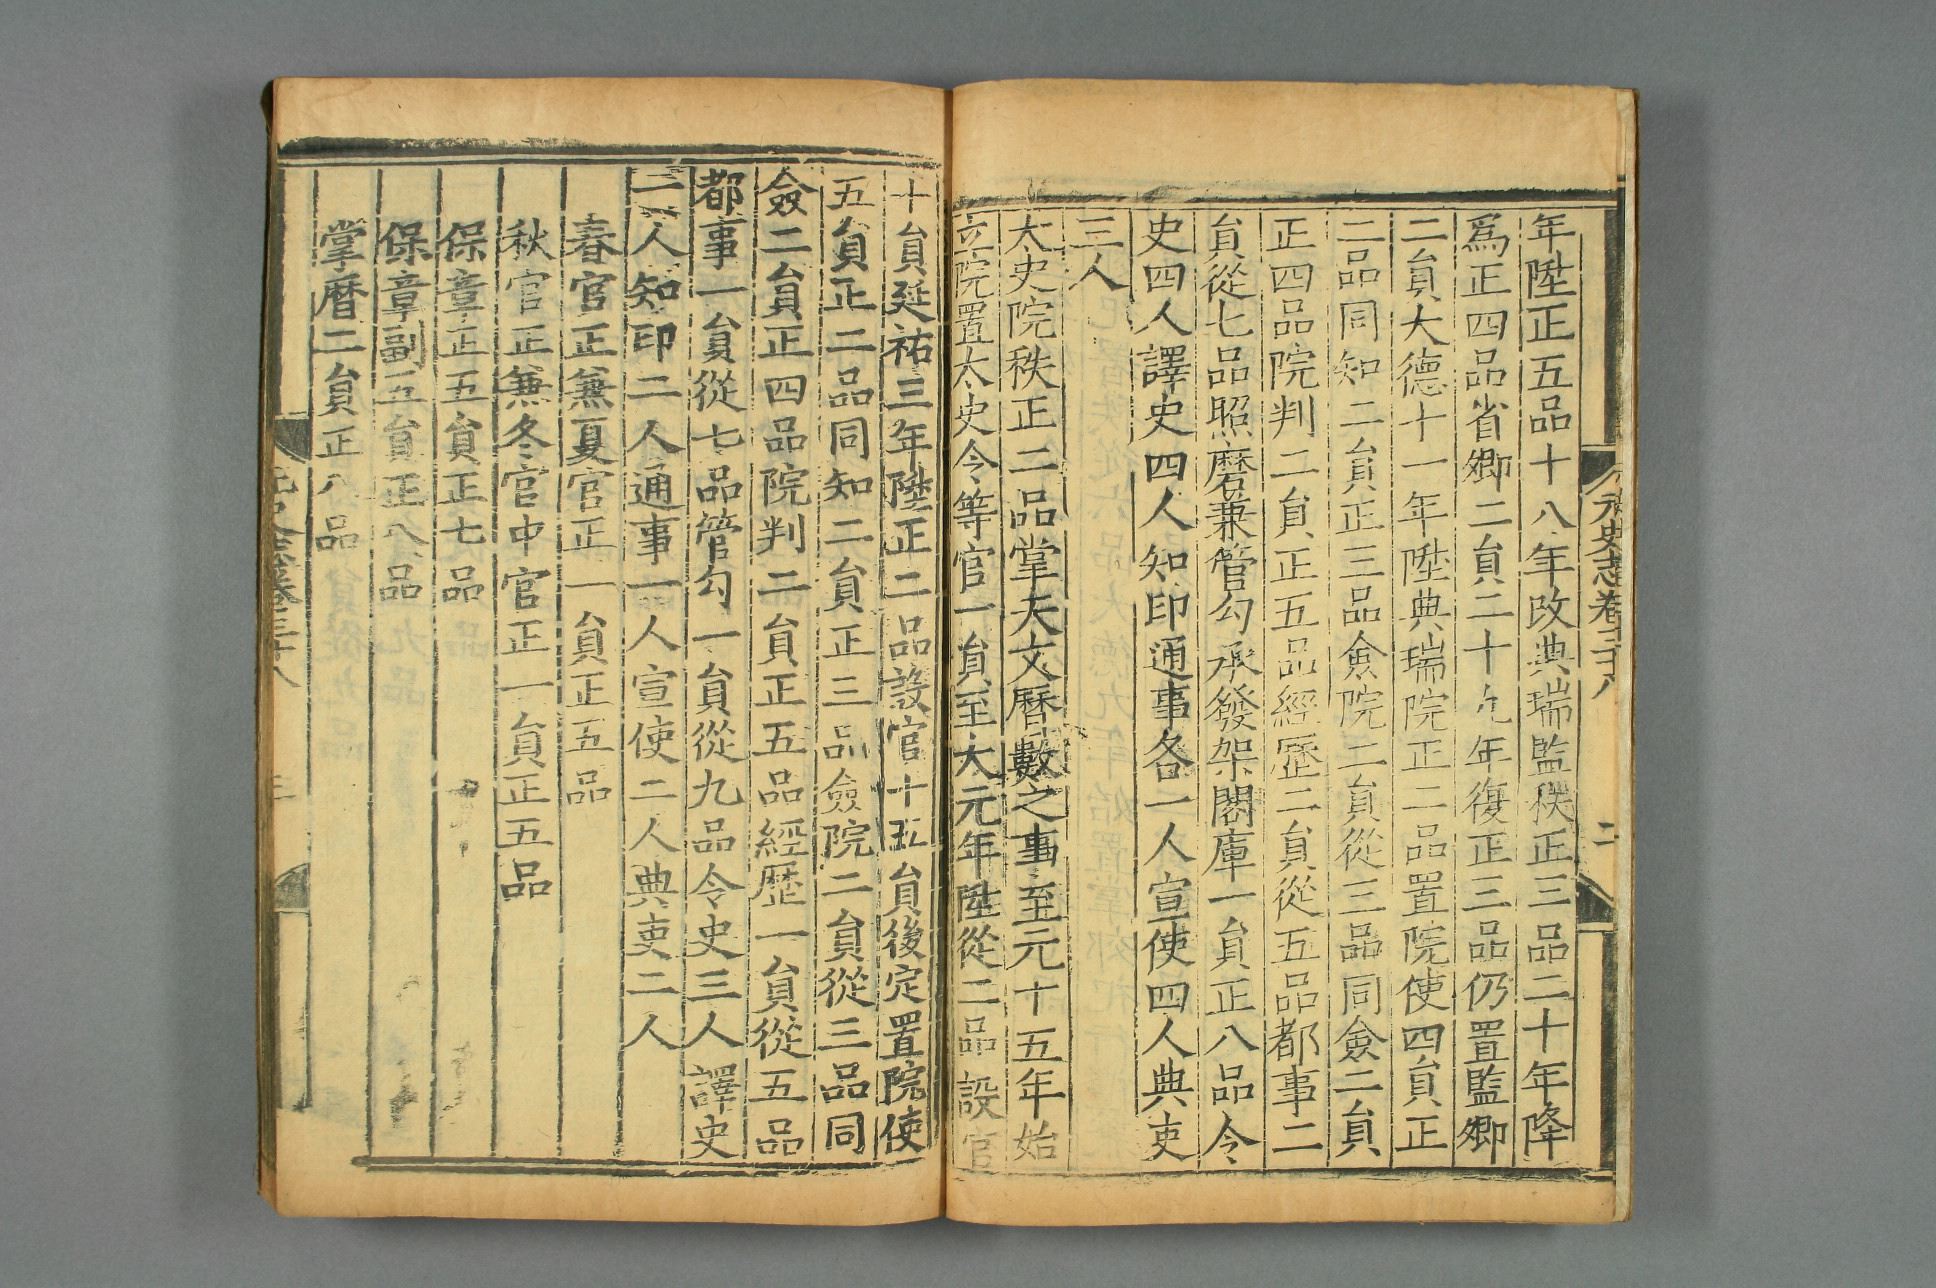 元史志卷三十八
二
年陞正五品十八年改典瑞監秩正三品二十年降
爲正四品省卿二員二十九年復正三品仍置監卿
二員大德十一年陞典瑞院正二品置院使四員正
二品同知二員正三品僉院二員從三品同僉二員
正四品院判二員正五品經歷二員從五品都事二
員從七品照磨兼管勾承發架閣庫一員正八品令
史四人譯史四人知印通事各一人宣使四人典吏
三人
太史院秩正二品掌天文曆數之事至元十五年始
立院置太史令等官一員至大元年陞從二品設官
十員延祐三年陞正二品設官十五員後定置院使
五員正二品同知二員正三品僉院二員從三品同
僉二員正四品院判二員正五品經歷一員從五品
都事一員從七品管勾一員從九品令史三人譯史
二人知印二人通事一人宣使二人典吏二人
春官正兼夏官正一員正五品
秋官正兼冬官中官正一員正五品
保章正五員正七品
保章副五員正八品
掌曆二員正八品
元史志卷三十八
三